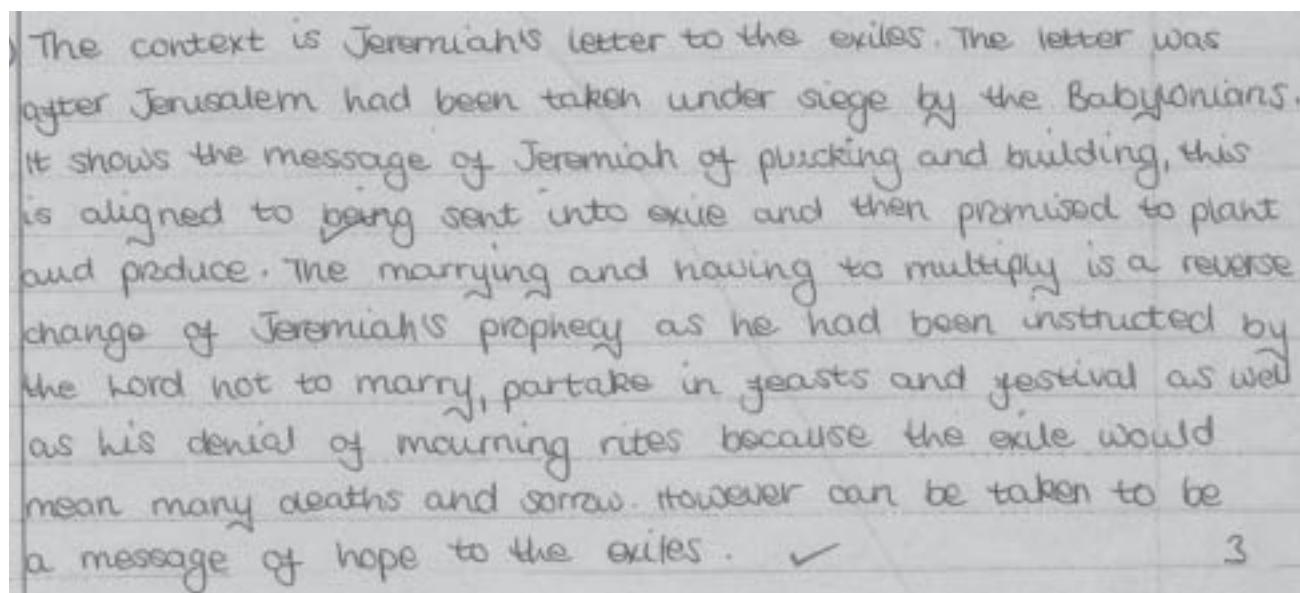 ) The context is Jeremiah's letter to the exiles. The letter was
after Jerusalem had been taken under siege by the Babylonians.
It shows the message of Jeremiah of plucking and building, this
is aligned to being sent into exile and then promised to plant
and produce. The marrying and having to multiply is a reverse
change of Jeremiah's prophecy as he had been instructed by
the Lord not to marry, partake in feasts and festival as well
as his denial of mourning rites because the exile would
mean many deaths and sorrow. However can be taken to be
a message of hope to the exiles. ✓ 3